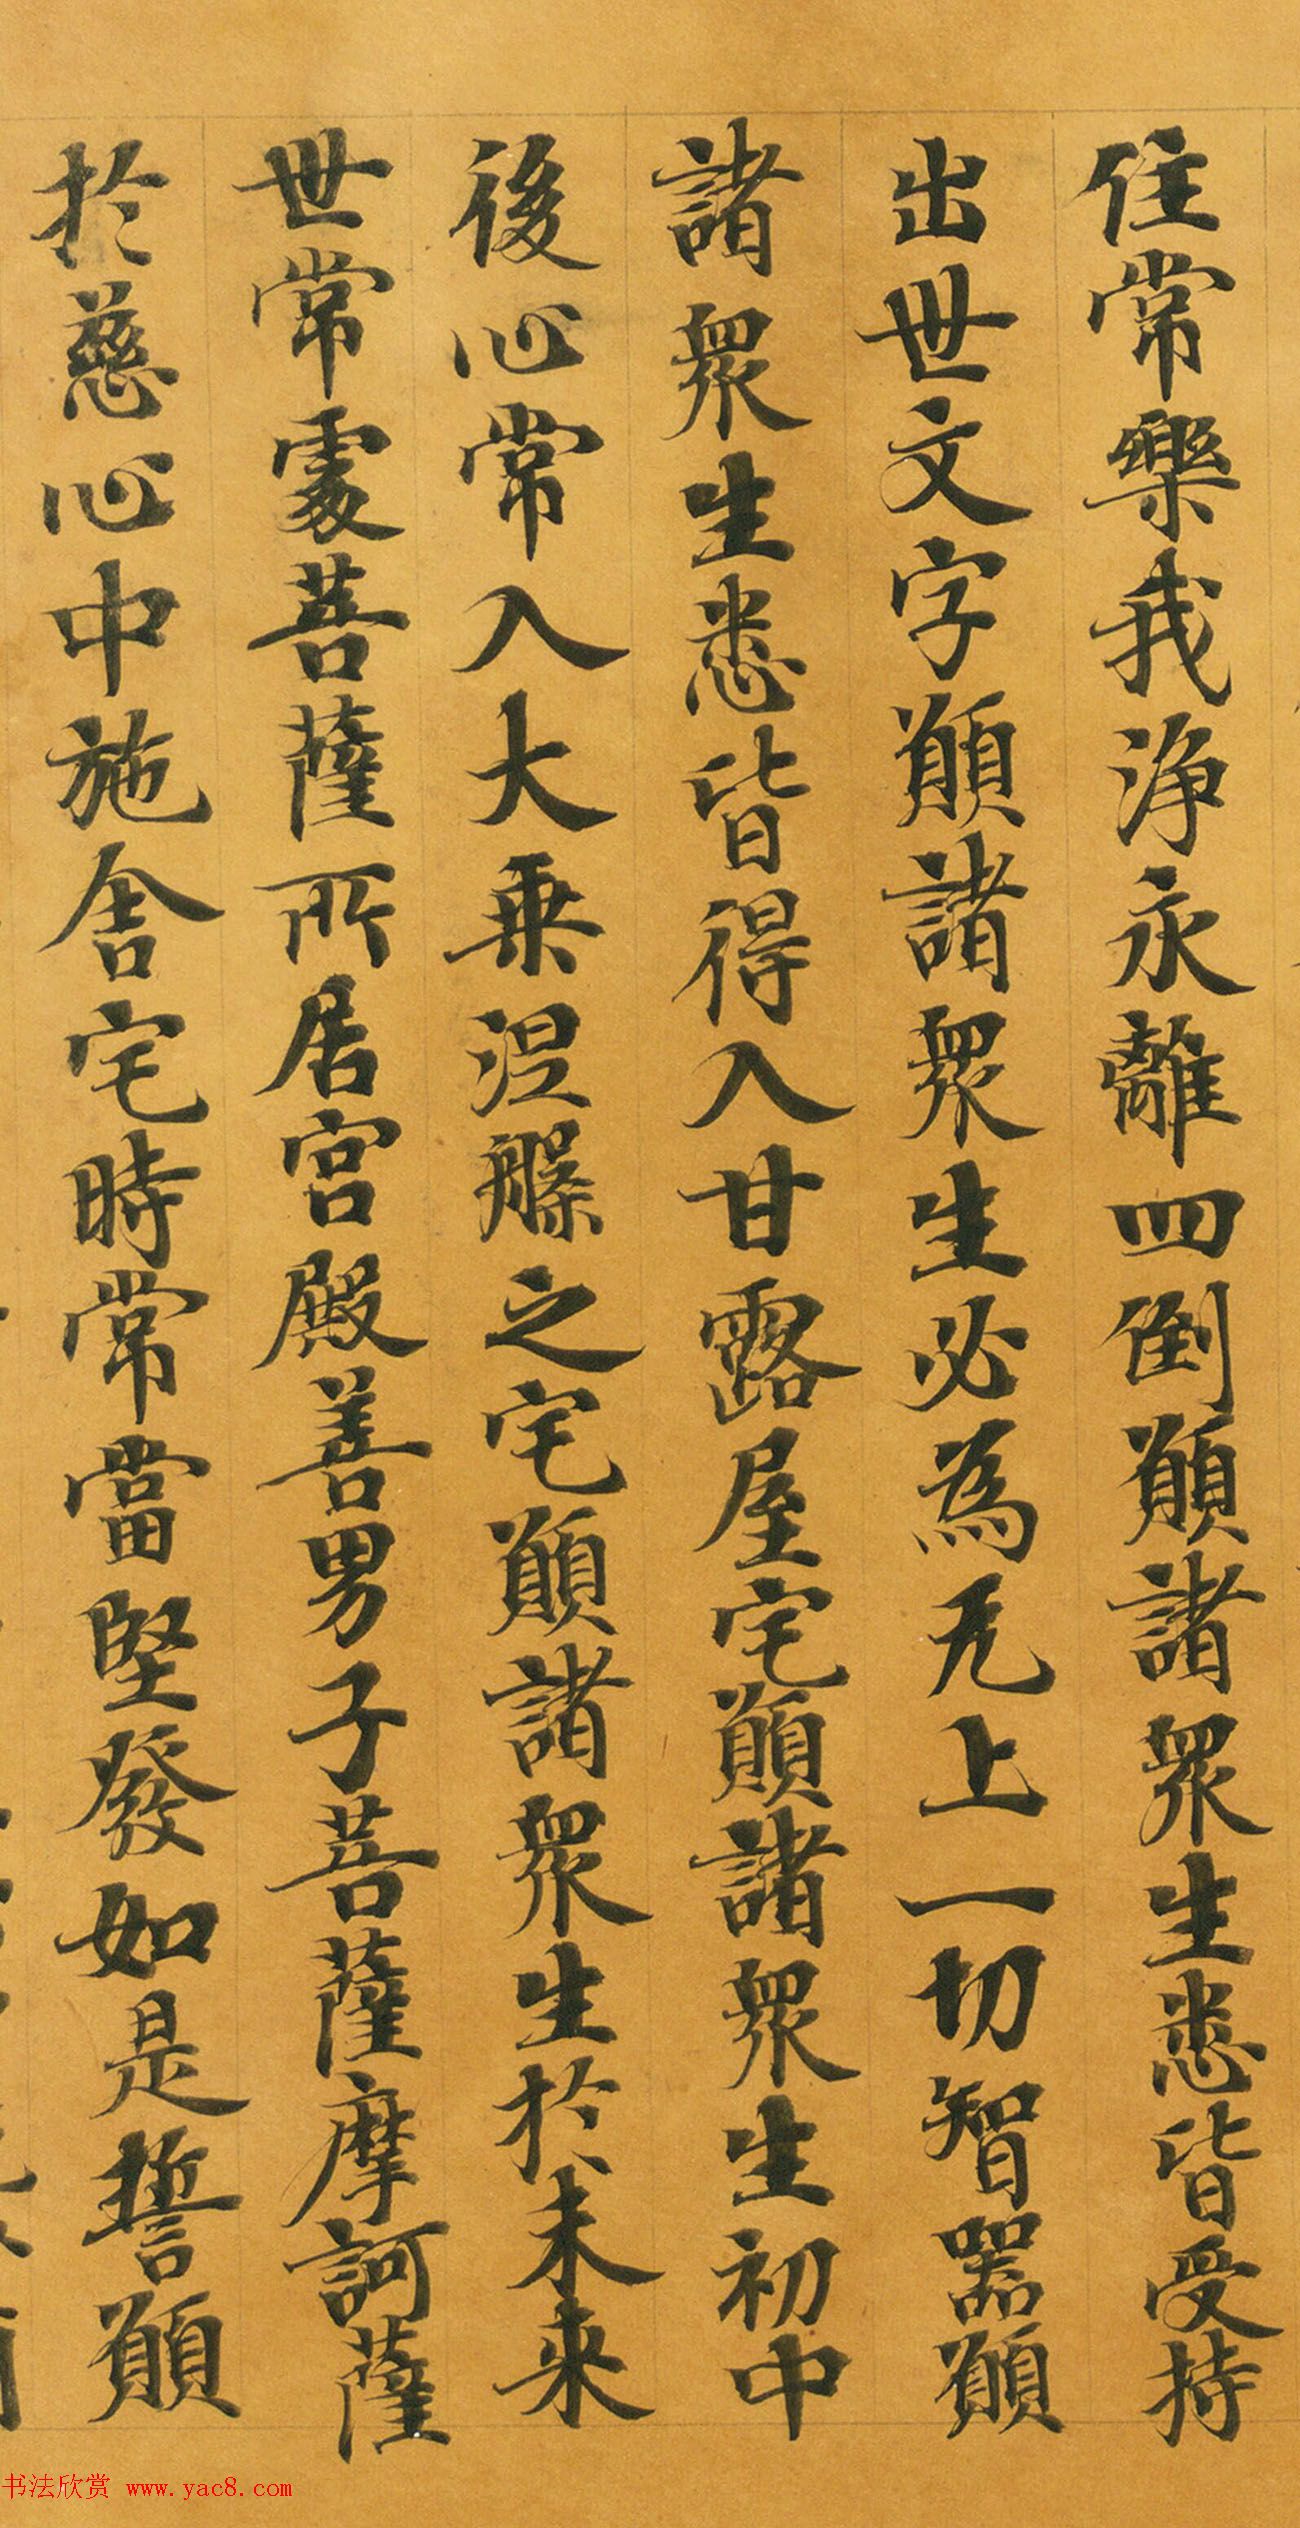 住常樂我淨永離四倒願諸眾生悉皆受持
出世文字願諸眾生必為无上一切智器願
諸眾生悉皆得入甘露屋宅願諸眾生初中
後心常入大乘涅槃之宅願諸眾生於未來
世常處菩薩所居宮殿善男子菩薩摩訶薩
於慈心中施舍宅時常當堅發如是誓願
书法欣赏 www.yac8.com